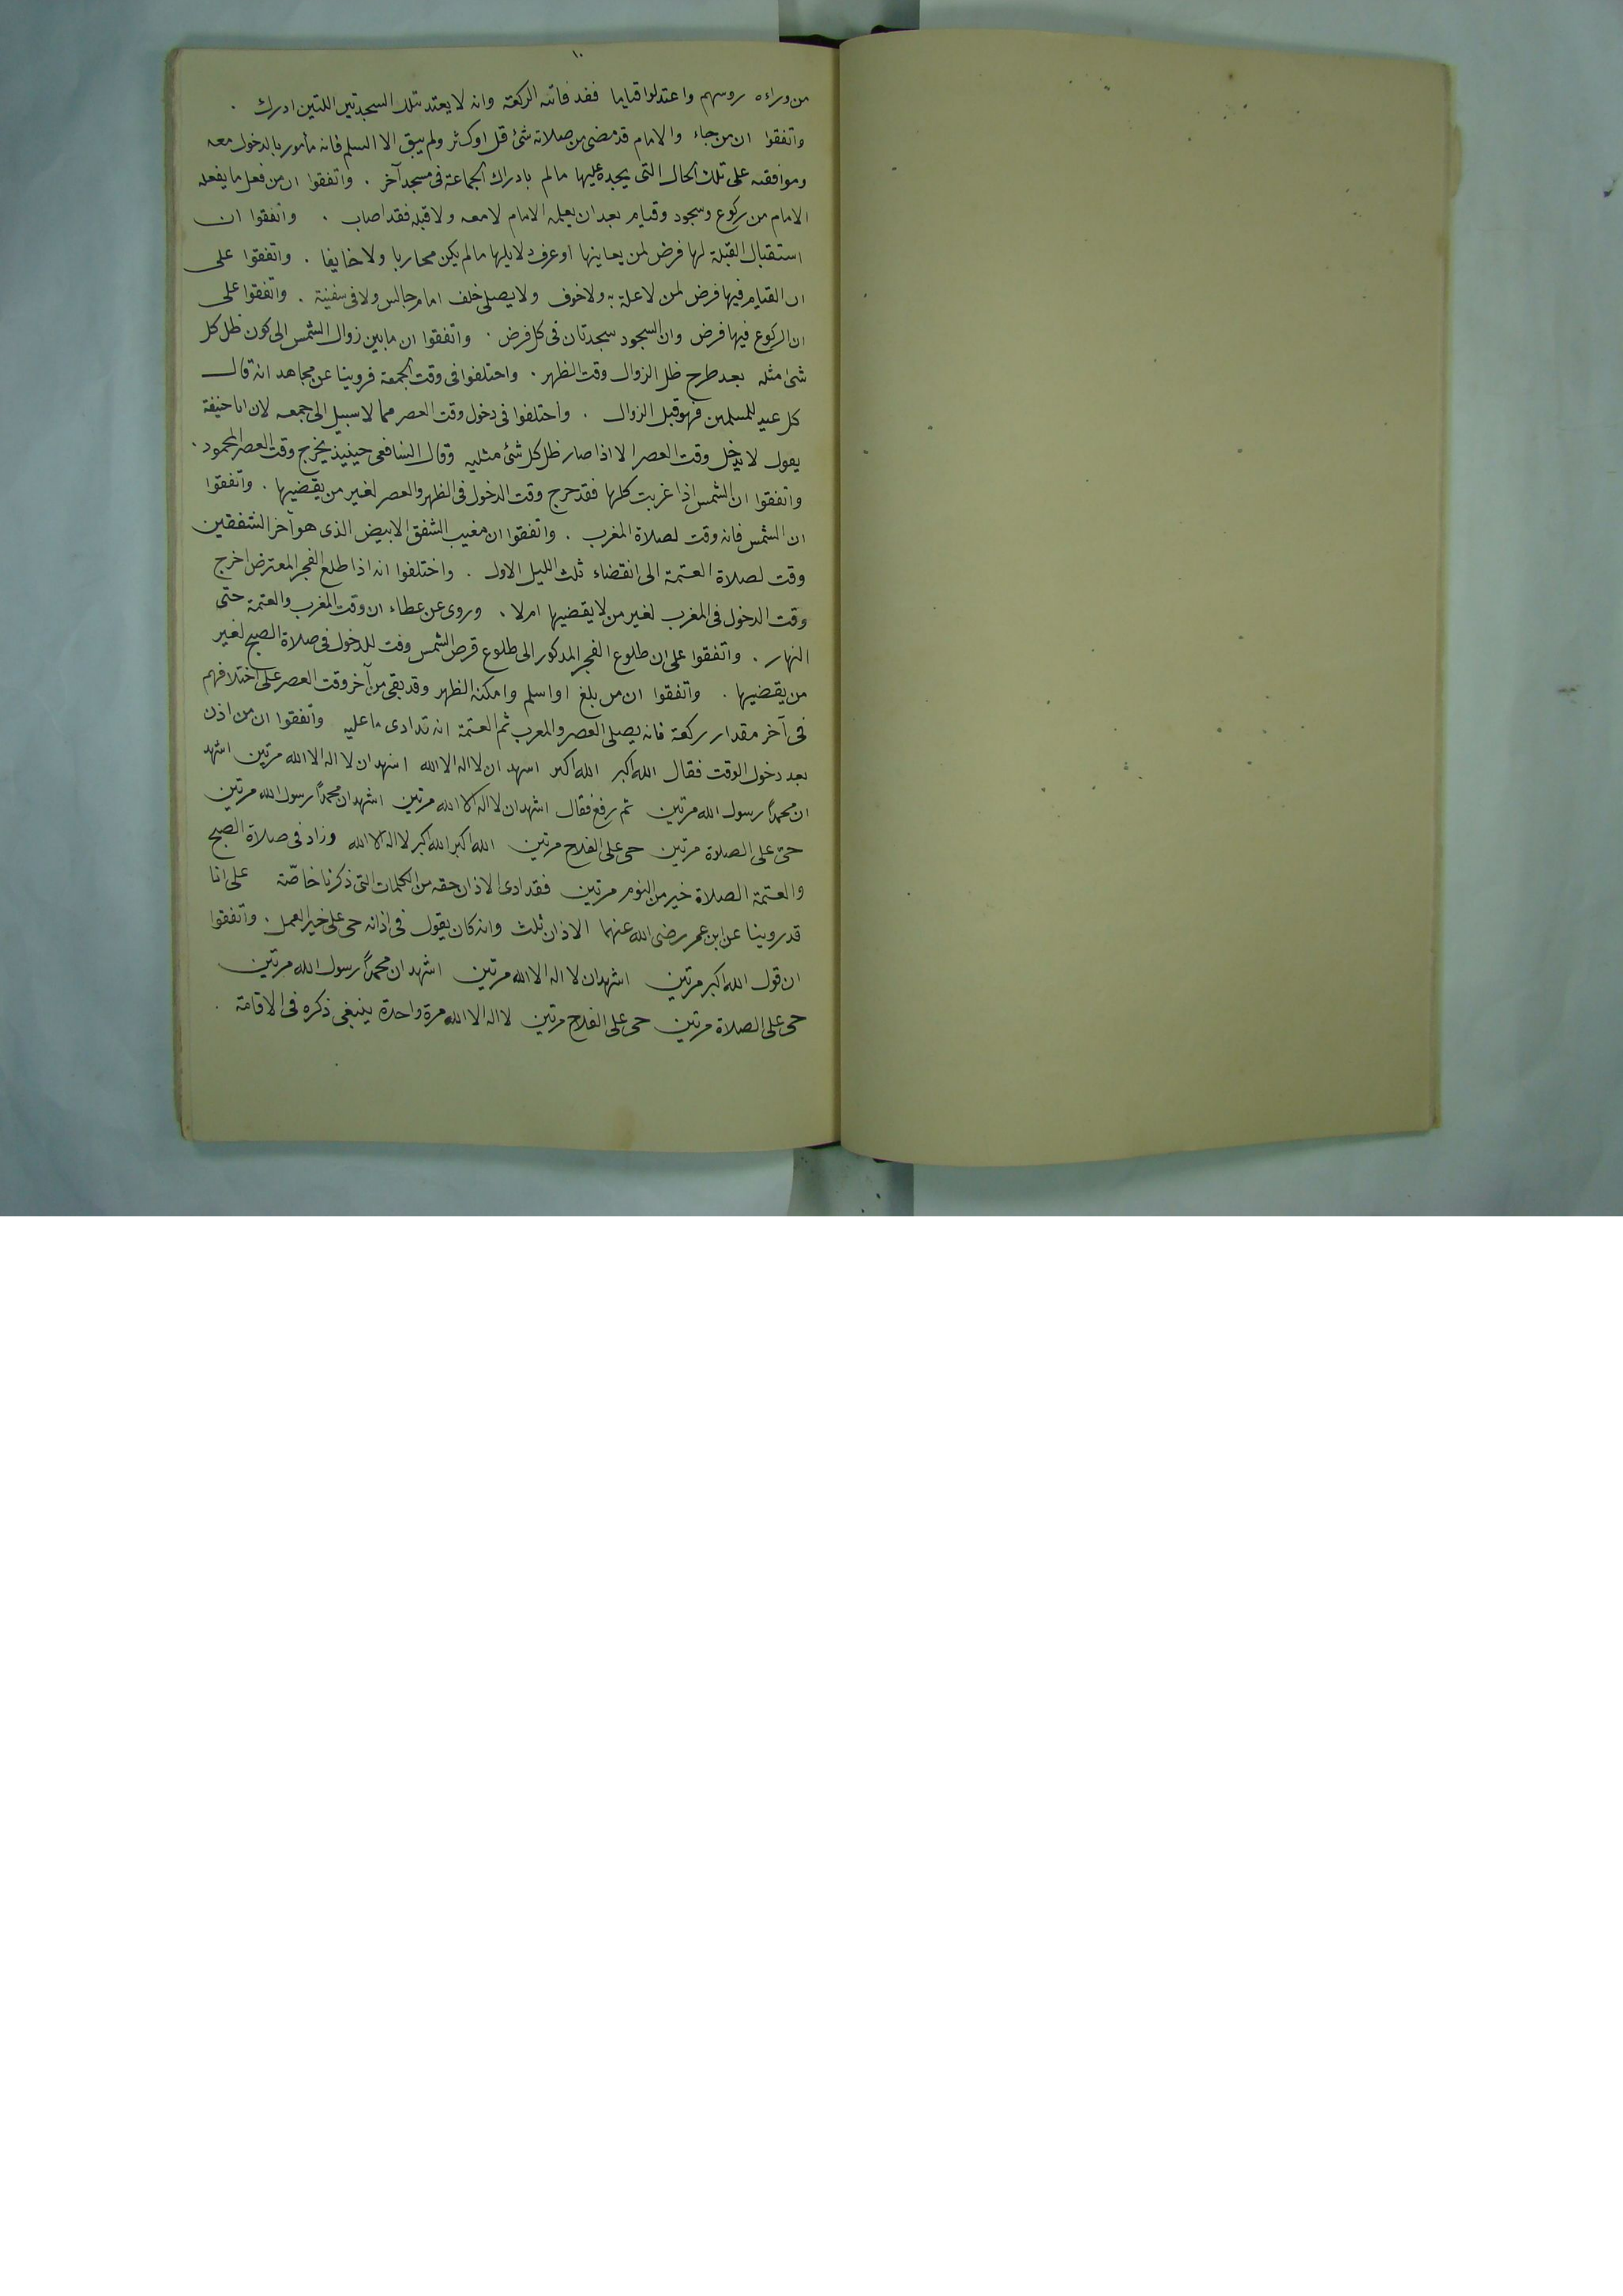 ١٠
من وراءه روسهم واعتدلوا قياما فقد فاتته الركعة وانه لا يعتد بتلك السجدتين اللتين ادرك .
واتفقوا ان من جاء والامام قد مضى من صلاته شئ قل او كثر ولم يبق الا السلم فانه مأمور بالدخول معه
وموافقته على تلك الحال التى يجده عليها ما لم بادراك الجماعة فى مسجد آخر . واتفقوا ان من فعل ما يفعله
الامام من ركوع وسجود وقيام بعد ان يعمله الامام لا معه ولا قبله فقد اصاب . واتفقوا ان
استقبال القبلة لها فرض لمن يعاينها او عرف دلايلها ما لم يكن محاربا ولا خايفا . واتفقوا على
ان القيام فيها فرض لمن لا علة به ولا خوف ولا يصلى خلف امام جالس ولا فى سفينة . واتفقوا على
ان الركوع فيها فرض وان السجود سجدتان فى كل فرض . واتفقوا ان ما بين زوال الشمس الى كون ظل كل
شئ مثله بعد طرح ظل الزوال وقت الظهر . واختلفوا فى وقت الجمعة فروينا عن مجاهد انه قال
كل عيد للمسلمين فهو قبل الزوال . واختلفوا فى دخول وقت العصر مما لا سبيل الى جمعه لان ابا حنيفة
يقول لا يدخل وقت العصر الا اذا صار ظل كل شئ مثليه وقال الشافعى حينيذ يخرج وقت العصر المحمود .
واتفقوا ان الشمس اذا غربت كلها فقد خرج وقت الدخول فى الظهر والعصر لغير من يقضيها . واتفقوا
ان الشمس فانه وقت لصلاة المغرب . واتفقوا ان مغيب الشفق الابيض الذى هو آخر الشفقين
وقت لصلاة العتمة الى انقضاء ثلث الليل الاول . واختلفوا انه اذا طلع الفجر المعترض اخرج
وقت الدخول فى المغرب لغير من لا يقضيها ام لا . وروى عن عطاء ان وقت المغرب والعتمة حتى
النهار . واتفقوا على ان طلوع الفجر المذكور الى طلوع قرص الشمس وقت للدخول فى صلاة الصبح لغير
من يقضيها . واتفقوا ان من بلغ او اسلم وامكنه الظهر وقد بقى من آخر وقت العصر على اختلافهم
فى آخر مقدار ركعة فانه يصلى العصر والمغرب ثم العتمة انه قد ادى ما عليه واتفقوا ان من اذن
بعد دخول الوقت فقال الله اكبر الله اكبر اشهد ان لا اله الا الله اشهد ان لا اله الا الله مرتين اشهد
ان محمداً رسول الله مرتين ثم رفع فقال اشهد ان لا اله الا الله مرتين اشهد ان محمداً رسول الله مرتين
حىّ على الصلاة مرتين حى على الفلاح مرتين الله اكبر الله اكبر لا اله الا الله وزاد فى صلاة الصبح
والعتمة الصلاة خير من النوم مرتين فقد ادى الاذان حقه من الكلمات التى ذكرنا خاصّة على انا
قد روينا عن ابن عمر رضى الله عنهما الاذان ثلث وانه كان يقول فى اذانه حى على خير العمل . واتفقوا
ان قول الله اكبر مرتين اشهد ان لا اله الا الله مرتين اشهد ان محمداً رسول الله مرتين
حى على الصلاة مرتين حى على الفلاح مرتين لا اله الا الله مرة واحدة ينبغى ذكره فى الاقامة .